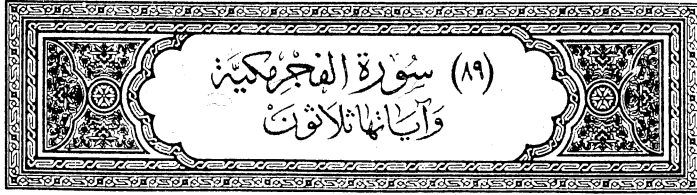 (٨٩) سُورَة الفَجْرِ مَكيَّة
وَآيَاتهَا ثَلَاثُونَ